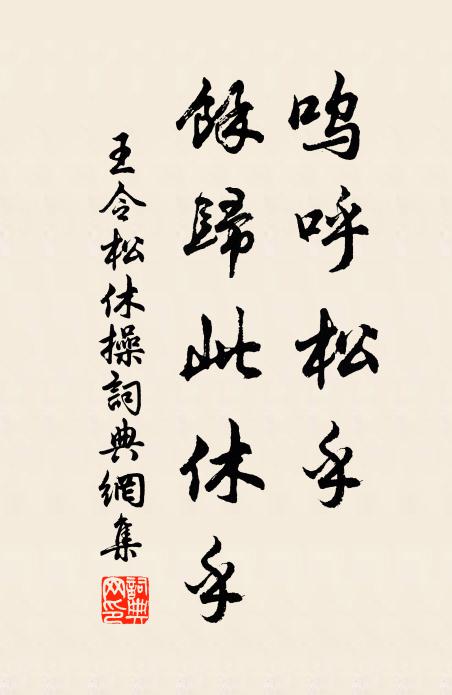 嗚呼松乎
餘歸此休乎
王令松休操詞典網集
詞典
网印